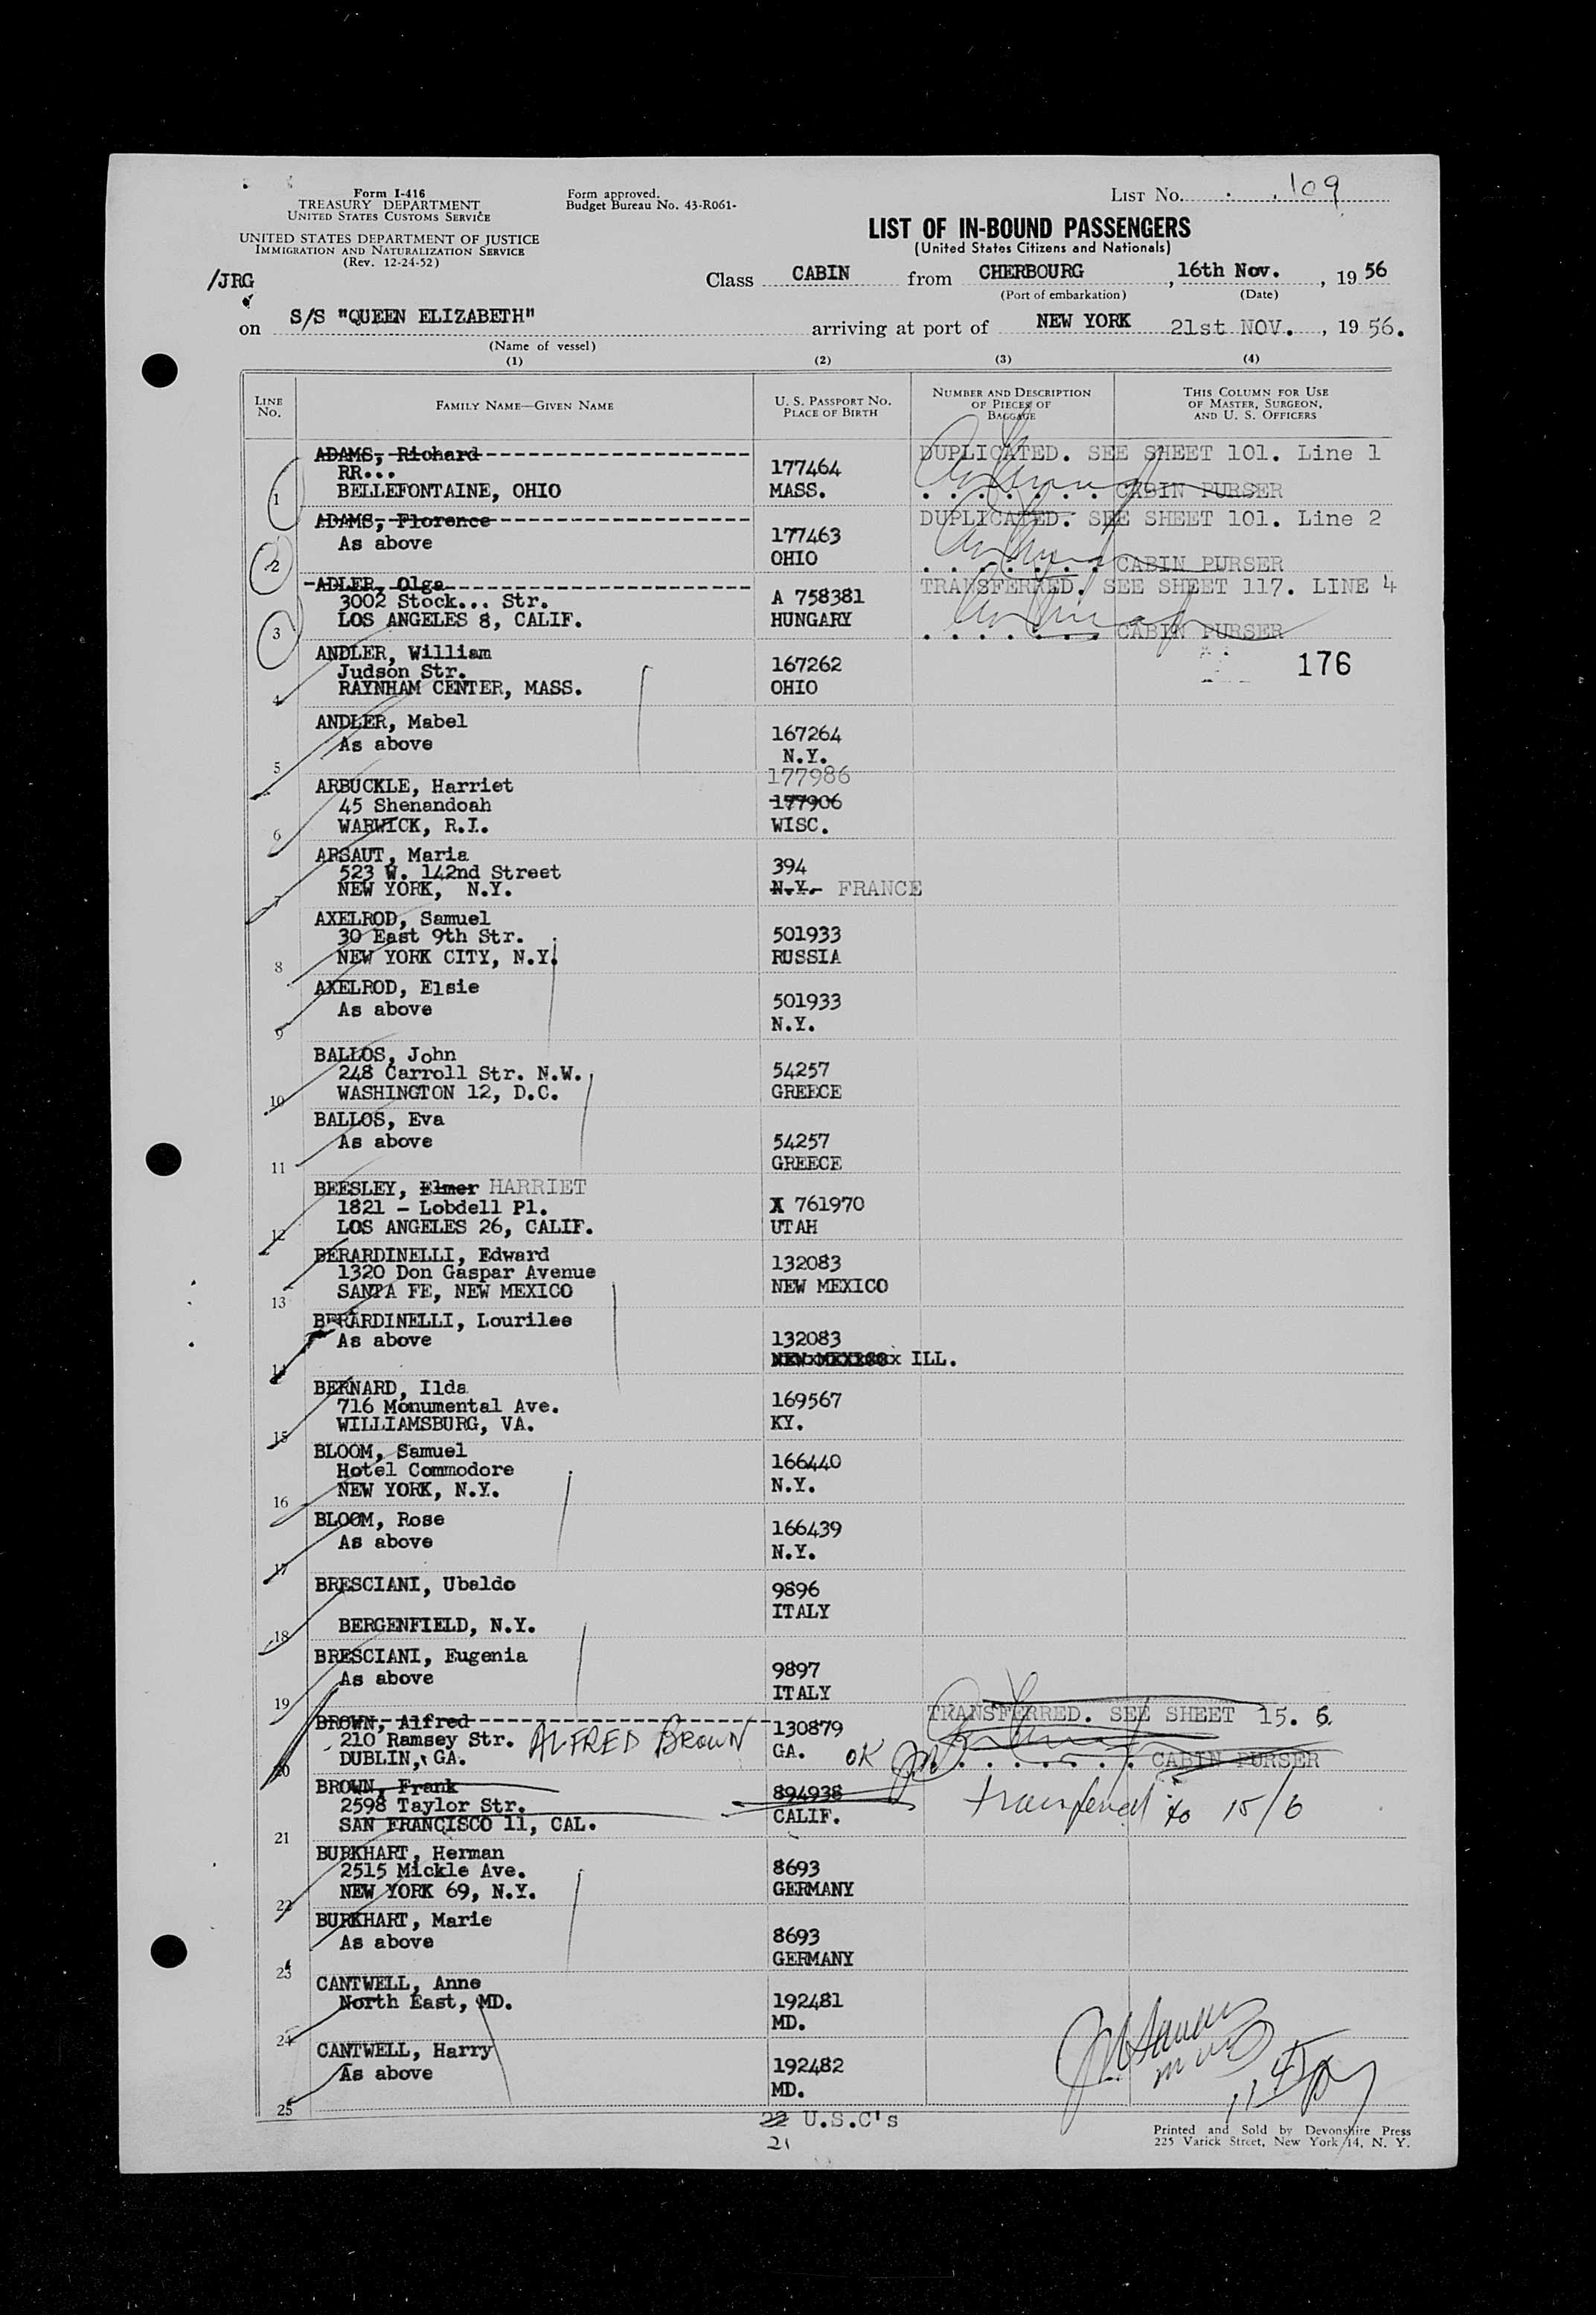 Form I-416
TREASURY DEPARTMENT
UNITED STATES CUSTOMS SERVICE
UNITED STATES DEPARTMENT OF JUSTICE
IMMIGRATION AND NATURALIZATION SERVICE
(Rev. 12-24-52)
Form approved.
Budget Bureau No. 43-R061-
LIST No. 109
LIST OF IN-BOUND PASSENGERS
(United States Citizens and Nationals)
/JRG
Class CABIN from CHERBOURG, 16th Nov., 1956
(Port of embarkation) (Date)
on S/S "QUEEN ELIZABETH" arriving at port of NEW YORK 21st NOV., 1956.
(Name of vessel)
(1) (2) (3) (4)
LINE No.
FAMILY NAME—GIVEN NAME
U. S. PASSPORT NO. PLACE OF BIRTH
NUMBER AND DESCRIPTION OF PIECES OF BAGGAGE
THIS COLUMN FOR USE OF MASTER, SURGEON, AND U. S. OFFICERS
1 ADAMS, Richard DUPLICATED. SEE SHEET 101. Line 1
RR... 177464
BELLEFONTAINE, OHIO MASS. CABIN PURSER
2 ADAMS, Florence DUPLICATED. SEE SHEET 101. Line 2
As above 177463
OHIO CABIN PURSER
3 ADLER, Olga TRANSFERRED. SEE SHEET 117. LINE 4
3002 Stock... Str. A 758381
LOS ANGELES 8, CALIF. HUNGARY CABIN PURSER
4 ANDLER, William 167262 176
Judson Str.
RAYNHAM CENTER, MASS. OHIO
5 ANDLER, Mabel 167264
As above N.Y.
6 ARBUCKLE, Harriet 177986
45 Shenandoah 177906
WARWICK, R.I. WISC.
7 ARSAUT, Maria 394
523 W. 142nd Street
NEW YORK, N.Y. N.Y. FRANCE
8 AXELROD, Samuel
30 East 9th Str. 501933
NEW YORK CITY, N.Y. RUSSIA
9 AXELROD, Elsie 501933
As above N.Y.
10 BALLOS, John
248 Carroll Str. N.W. 54257
WASHINGTON 12, D.C. GREECE
11 BALLOS, Eva 54257
As above GREECE
12 BEESLEY, Elmer HARRIET
1821 - Lobdell Pl. X 761970
LOS ANGELES 26, CALIF. UTAH
13 BERARDINELLI, Edward 132083
1320 Don Gaspar Avenue
SANTA FE, NEW MEXICO NEW MEXICO
14 BERARDINELLI, Lourilee
As above 132083
NEW MEXICO ILL.
15 BERNARD, Ilda 169567
716 Monumental Ave.
WILLIAMSBURG, VA. KY.
16 BLOOM, Samuel 166440
Hotel Commodore
NEW YORK, N.Y. N.Y.
17 BLOOM, Rose 166439
As above N.Y.
18 BRESCIANI, Ubaldo 9896
ITALY
BERGENFIELD, N.Y.
19 BRESCIANI, Eugenia 9897
As above ITALY
20 BROWN, Alfred 130879 TRANSFERRED. SEE SHEET 15. 6.
210 Ramsey Str. ALFRED BROWN
DUBLIN, GA. GA. OK CABIN PURSER
21 BROWN, Frank 894938
2598 Taylor Str. transferred to 15/6
SAN FRANCISCO 11, CAL. CALIF.
22 BURKHART, Herman 8693
2515 Mickle Ave.
NEW YORK 69, N.Y. GERMANY
23 BURKHART, Marie 8693
As above GERMANY
24 CANTWELL, Anne 192481
North East, MD. MD.
25 CANTWELL, Harry 192482
As above MD.
22 U.S.C's
21
Printed and Sold by Devonshire Press
225 Varick Street, New York 14, N. Y.